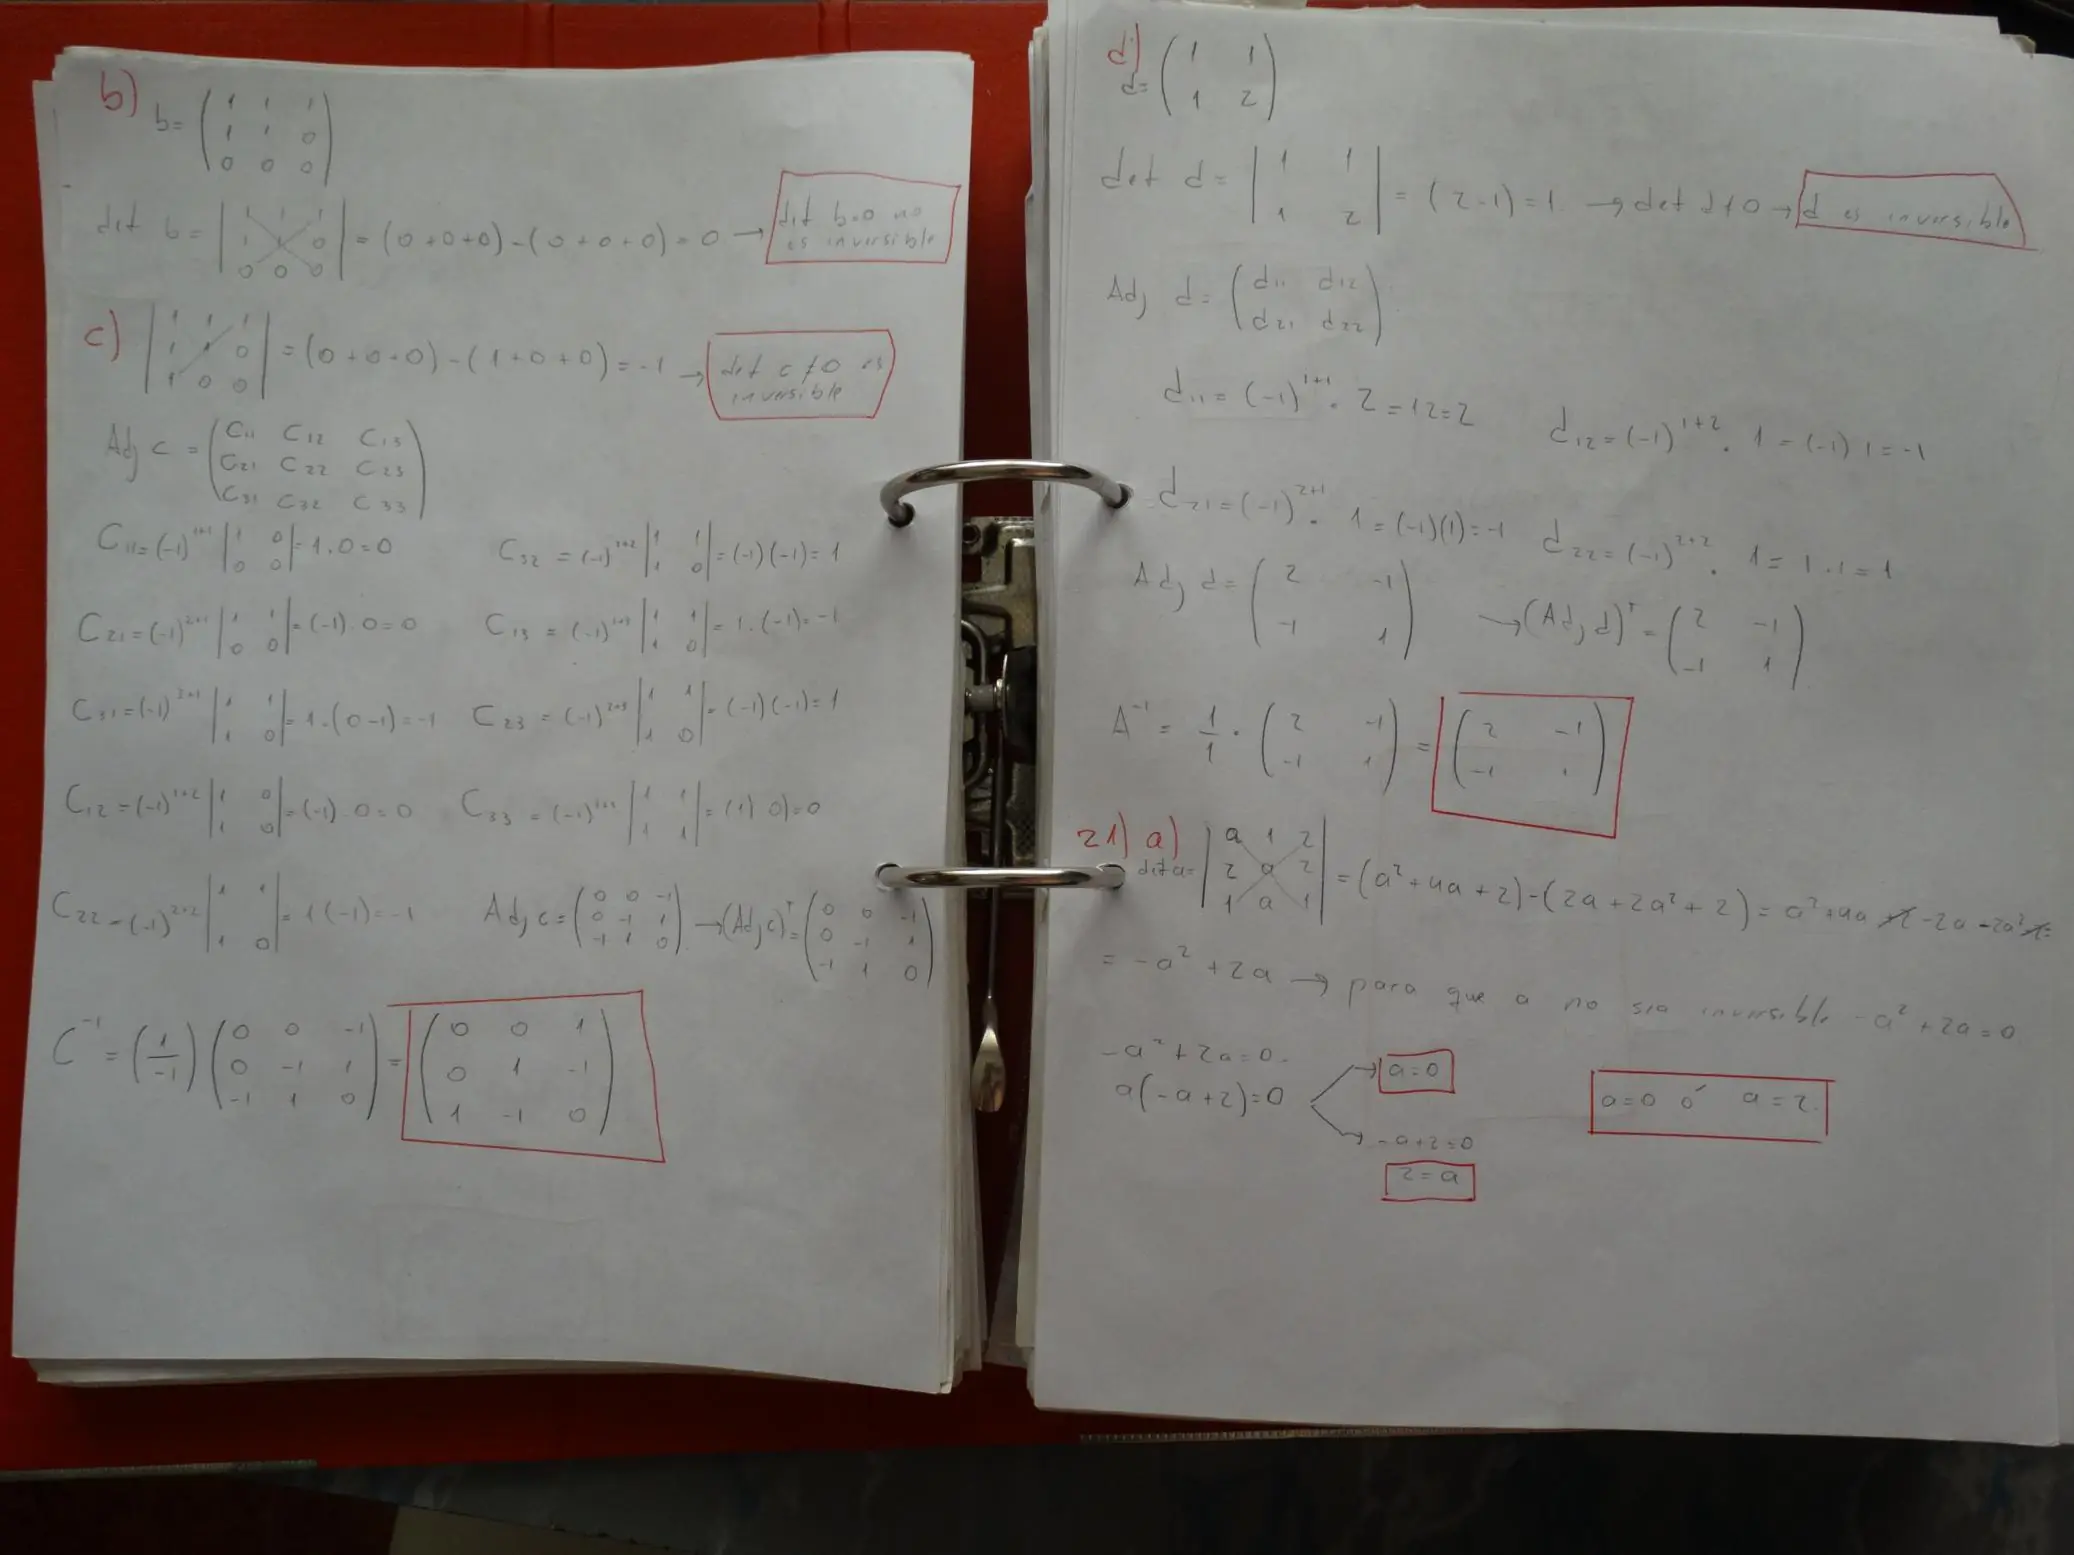 b) b= ( 1 1 1
1 1 0
0 0 0 )
det b= | 1 1 1
1 1 0
0 0 0 | = (0+0+0)-(0+0+0)=0 → det b=0 no
es inversible
c) | 1 1 1
1 1 0
1 0 0 | = (0+0+0)-(1+0+0)=-1 → det c≠0 es
inversible
Adj c = ( C11 C12 C13
C21 C22 C23
C31 C32 C33 )
C11=(-1)^1+1 | 1 0
0 0 | =1.0=0
C32 = (-1)^3+2 | 1 1
1 0 | =(-1)(-1)=1
C21=(-1)^2+1 | 1 1
0 0 | =(-1).0=0
C13 = (-1)^1+3 | 1 1
1 0 | =1.(-1)=-1
C31=(-1)^3+1 | 1 1
1 0 | =1.(0-1)=-1
C23 = (-1)^2+3 | 1 1
1 0 | =(-1)(-1)=1
C12=(-1)^1+2 | 1 0
1 0 | =(-1).0=0
C33 = (-1) | 1 1
1 1 | =(1) 0)=0
C22=(-1)^2+2 | 1 1
1 0 | =1(-1)=-1
Adj c= ( 0 0 -1
0 -1 1
-1 1 0 ) → (Adj c)^T = ( 0 0 -1
0 -1 1
-1 1 0 )
C^-1 = (1/-1) ( 0 0 -1
0 -1 1
-1 1 0 ) = ( 0 0 1
0 1 -1
1 -1 0 )
d)
d= ( 1 1
1 2 )
det d= | 1 1
1 2 | = (2-1)=1 → det d≠0 → d es inversible
Adj d= ( d11 d12
d21 d22 )
d11=(-1)^1+1 . 2=12=2
d12=(-1)^1+2 . 1=(-1) 1=-1
d21=(-1)^2+1 . 1=(-1)(1)=-1
d22=(-1)^2+2 . 1=1.1=1
Adj d= ( 2 -1
-1 1 ) → (Adj d)^T = ( 2 -1
-1 1 )
A^-1 = 1/1 . ( 2 -1
-1 1 ) = ( 2 -1
-1 1 )
21) a) det a= | a 1 2
2 a 2
1 a 1 | = (a²+4a+2)-(2a+2a²+2)=a²+4a+2-2a-2a²-2=
= -a²+2a → para que a no sea inversible -a²+2a=0
-a²+2a=0.
a(-a+2)=0
a=0
-a+2=0
2=a
a=0 ó a=2.